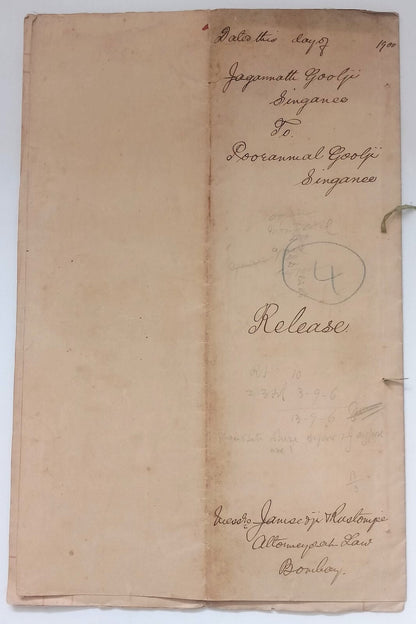 Dated this day of 1900
Jagannath Goolji
Singanee
To.
Pooranmal Goolji
Singanee
4
Release.
10
3-9-6
13-9-6
Messrs Jamsedji & Rustomji
Attorneys at Law
Bombay.